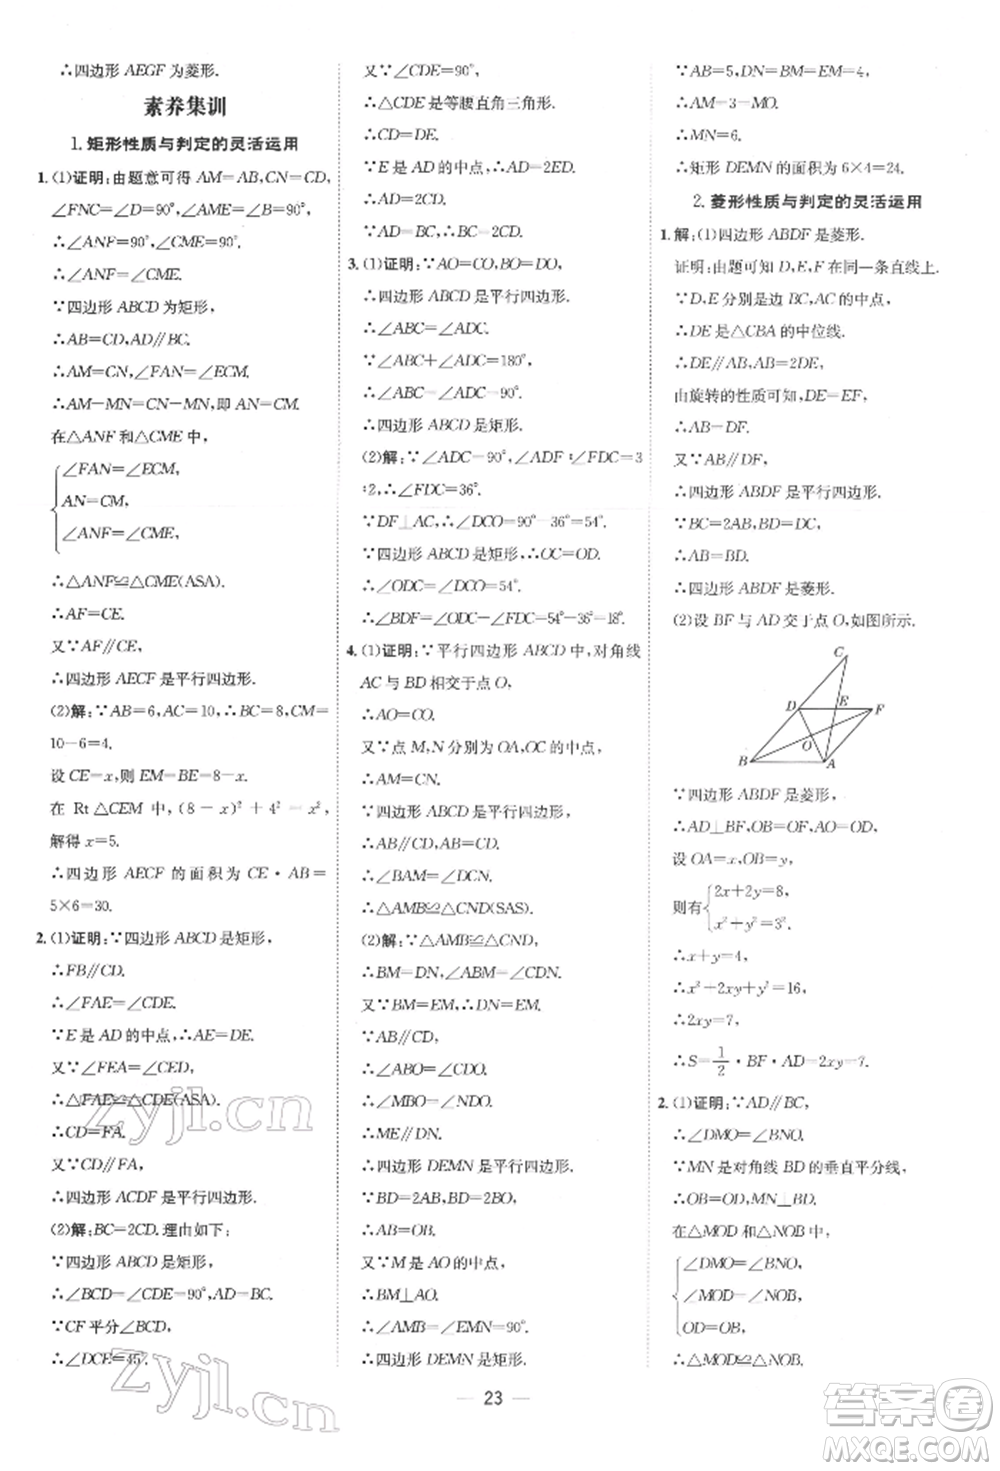 ∴四边形 AEGF 为菱形.
素养集训
1. 矩形性质与判定的灵活运用
1. (1)证明:由题意可得 AM=AB,CN=CD,
∠FNC=∠D=90°,∠AME=∠B=90°,
∴∠ANF=90°,∠CME=90°.
∵四边形 ABCD 为矩形,
∴AB=CD,AD∥BC.
∴AM=CN,∠FAN=∠ECM.
∴AM-MN=CN-MN,即 AN=CM.
在△ANF 和△CME 中,
∠FAN=∠ECM,
AN=CM,
∠ANF=∠CME,
∴△ANF≌△CME(ASA).
∴AF=CE.
又∵AF∥CE,
∴四边形 AECF 是平行四边形.
(2)解:∵AB=6,AC=10,∴BC=8,CM=
10-6=4.
设 CE=x,则 EM=BE=8-x.
在 Rt△CEM 中,(8-x)²+4²=x²,
解得 x=5.
∴四边形 AECF 的面积为 CE·AB=
5×6=30.
2. (1)证明:∵四边形 ABCD 是矩形,
∴FB∥CD.
∴∠FAE=∠CDE.
∵E 是 AD 的中点,∴AE=DE.
又∵∠FEA=∠CED,
∴△FAE≌△CDE(ASA).
∴CD=FA.
又∵CD∥FA,
∴四边形 ACDF 是平行四边形.
(2)解:BC=2CD. 理由如下:
∵四边形 ABCD 是矩形,
∴∠BCD=∠CDE=90°.
∵CF 平分∠BCD,
∴∠DCE=45°.
又∵∠CDE=90°,
∴△CDE 是等腰直角三角形.
∴CD=DE.
∵E 是 AD 的中点,∴AD=2DE.
∴AD=2CD.
∵AD=BC,∴BC=2CD.
3. (1)证明:∵AO=CO,BO=DO,
∴四边形 ABCD 是平行四边形.
∴∠ABC=∠ADC.
∵∠ABC+∠ADC=180°,
∴∠ABC=∠ADC=90°.
∴四边形 ABCD 是矩形.
(2)解:∵∠ADC=90°,∠ADF∶∠FDC=3
∶2,∴∠FDC=36°.
∵DF⊥AC,∴∠DCO=90°-36°=54°.
∵四边形 ABCD 是矩形,∴OC=OD.
∴∠ODC=∠DCO=54°.
∴∠BDF=∠ODC-∠FDC=54°-36°=18°.
4. (1)证明:∵平行四边形 ABCD 中,对角线
AC 与 BD 相交于点 O,
∴AO=CO.
又∵点 M,N 分别为 OA,OC 的中点,
∴AM=CN.
∵四边形 ABCD 是平行四边形,
∴AB∥CD,AB=CD.
∴∠BAM=∠DCN.
∴△AMB≌△CND(SAS).
(2)解:∵△AMB≌△CND,
∴BM=DN,∠ABM=∠CDN.
又∵BM=EM,∴DN=EM.
∵AB∥CD,
∴∠ABO=∠CDO.
∴∠MBO=∠NDO.
∴ME∥DN.
∴四边形 DEMN 是平行四边形.
∵BD=2AB,BD=2BO,
∴AB=OB.
又∵M 是 AO 的中点,
∴BM⊥AO.
∴∠AMB=∠EMN=90°.
∴四边形 DEMN 是矩形.
∵AB=5,DN=BM=EM=4,
∴AM=3=MO.
∴MN=6.
∴矩形 DEMN 的面积为 6×4=24.
2. 菱形性质与判定的灵活运用
1. 解:(1)四边形 ABDF 是菱形.
证明:由题可知 D,E,F 在同一条直线上.
∵D,E 分别是边 BC,AC 的中点,
∴DE 是△CBA 的中位线.
∴DE∥AB,AB=2DE.
由旋转的性质可知,DE=EF,
∴AB=DF.
又∵AB∥DF,
∴四边形 ABDF 是平行四边形.
∵BC=2AB,BD=DC,
∴AB=BD.
∴四边形 ABDF 是菱形.
(2)设 BF 与 AD 交于点 O,如图所示.
C
D E F
O
B A
∵四边形 ABDF 是菱形,
∴AD⊥BF,OB=OF,AO=OD.
设 OA=x,OB=y,
则有 2x+2y=8,
x²+y²=3²,
∴x+y=4,
∴x²+2xy+y²=16,
∴2xy=7,
∴S=1/2·BF·AD=2xy=7.
2. (1)证明:∵AD∥BC,
∴∠DMO=∠BNO.
∵MN 是对角线 BD 的垂直平分线,
∴OB=OD,MN⊥BD.
在△MOD 和△NOB 中,
∠DMO=∠BNO,
∠MOD=∠NOB,
OD=OB,
∴△MOD≌△NOB.
23
zyjl.cn
zyjl.cn
答案圈
MXQE.COM